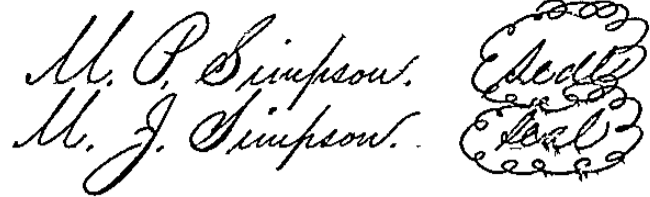 M. P. Simpson. Seal
M. J. Simpson. Seal